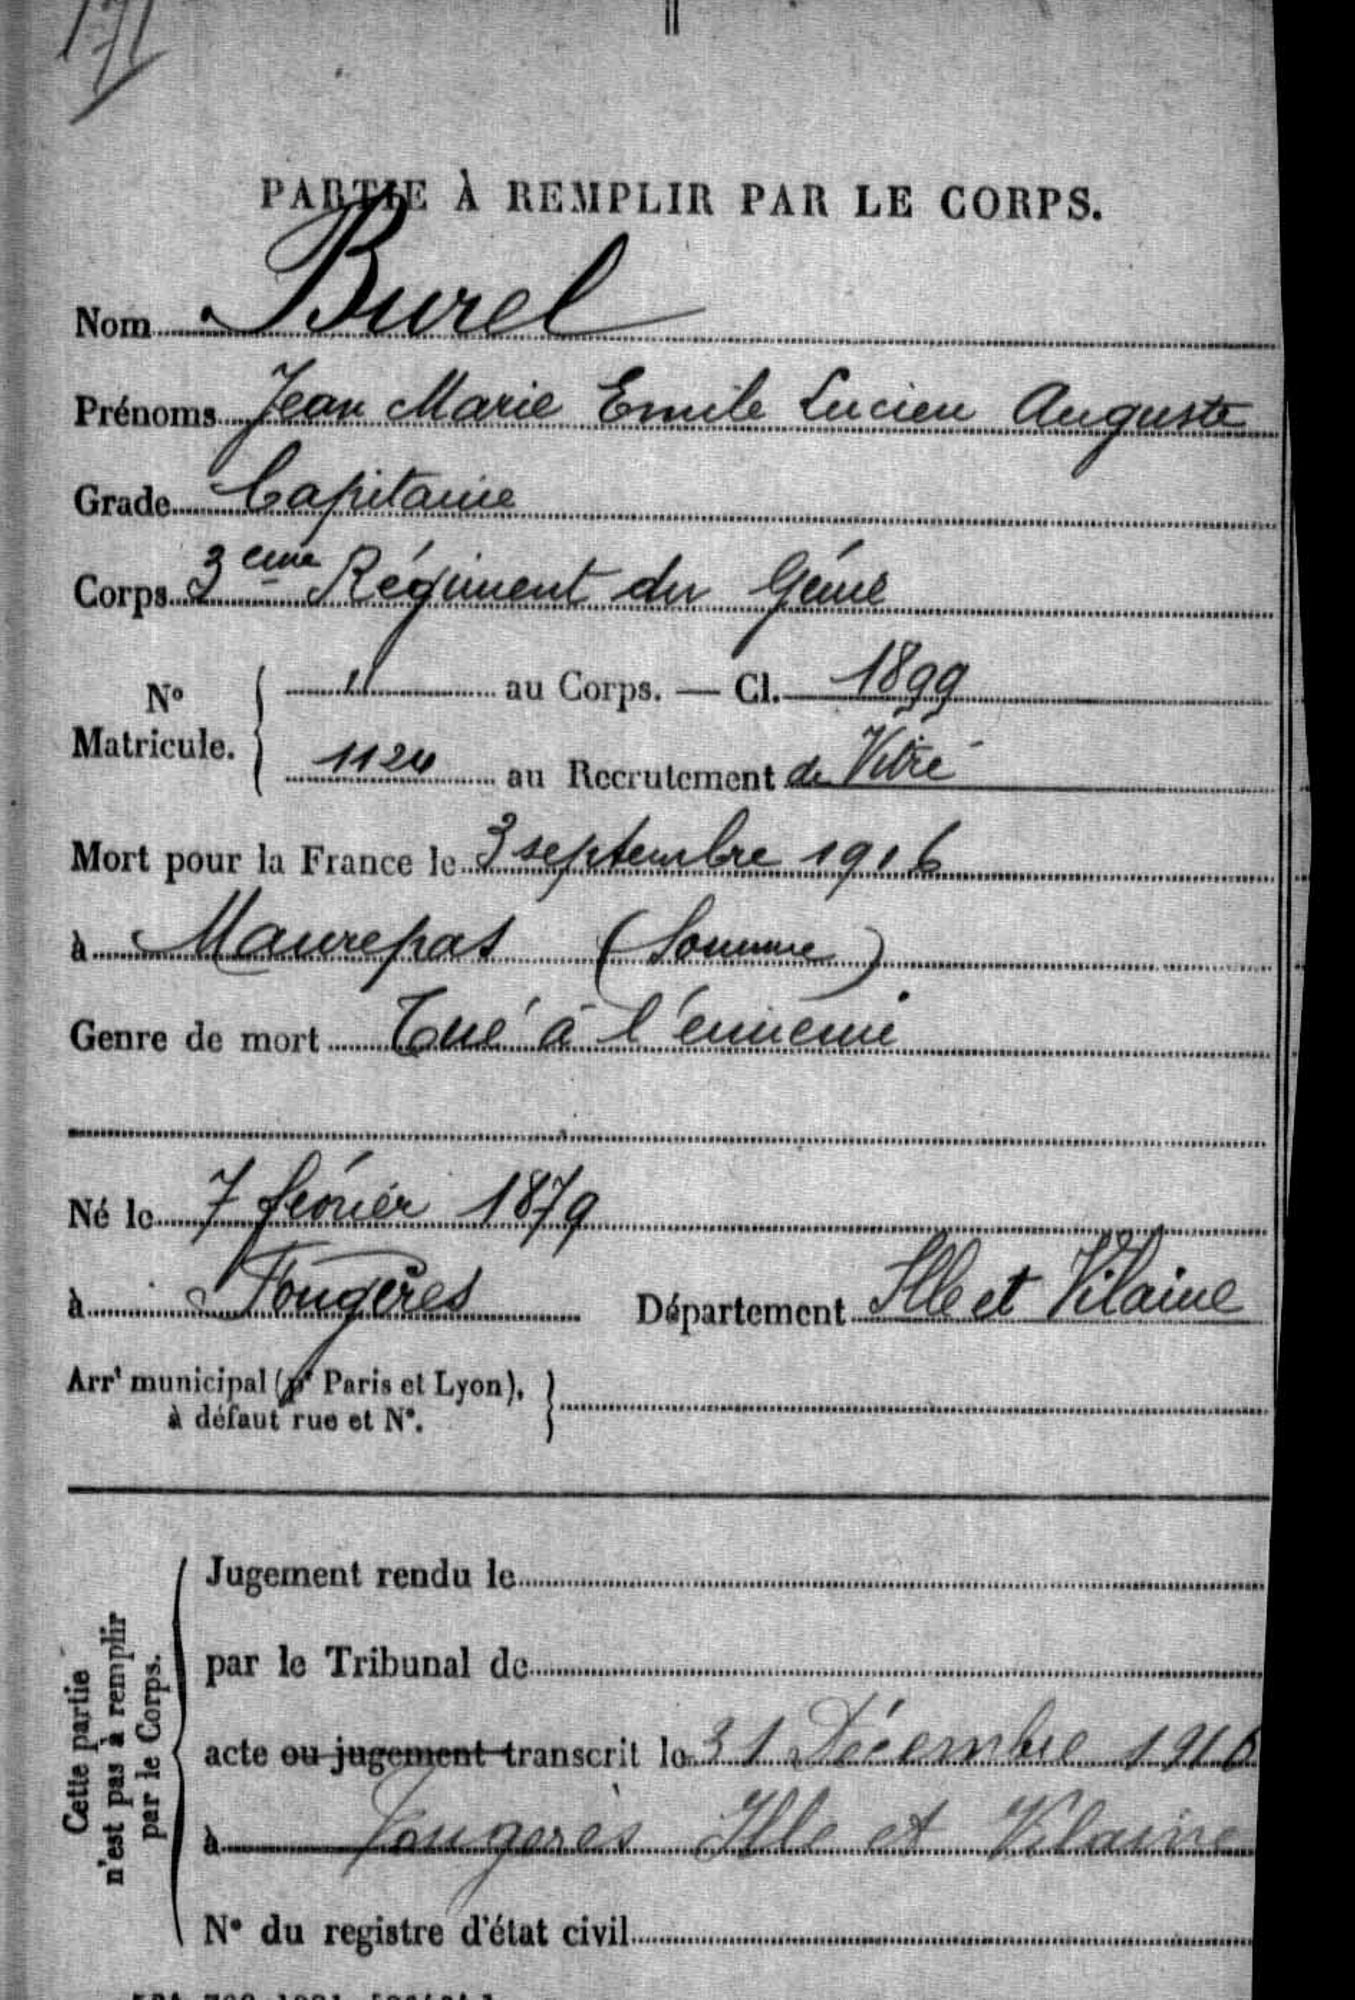 171
PARTIE À REMPLIR PAR LE CORPS.
Nom Burel
Prénoms Jean Marie Emile Lucien Auguste
Grade Capitaine
Corps 3ème Régiment du Génie
N° Matricule. { " au Corps. — Cl. 1899
1124 au Recrutement de Vitré
Mort pour la France le 3 septembre 1916
à Maurepas (Somme)
Genre de mort Tué à l'ennemi
Né le 7 février 1879
à Fougères Département Ille et Vilaine
Arrt municipal (pr Paris et Lyon), }
à défaut rue et N°.
Cette partie
n'est pas à remplir
par le Corps.
Jugement rendu le
par le Tribunal de
acte ou jugement transcrit le 31 Décembre 1916
à Fougères Ille et Vilaine
N° du registre d'état civil